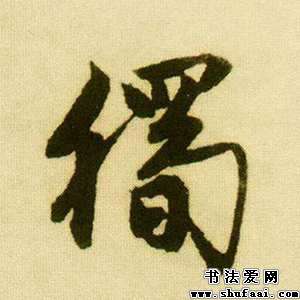 獨
书法爱网
www.shufaai.com